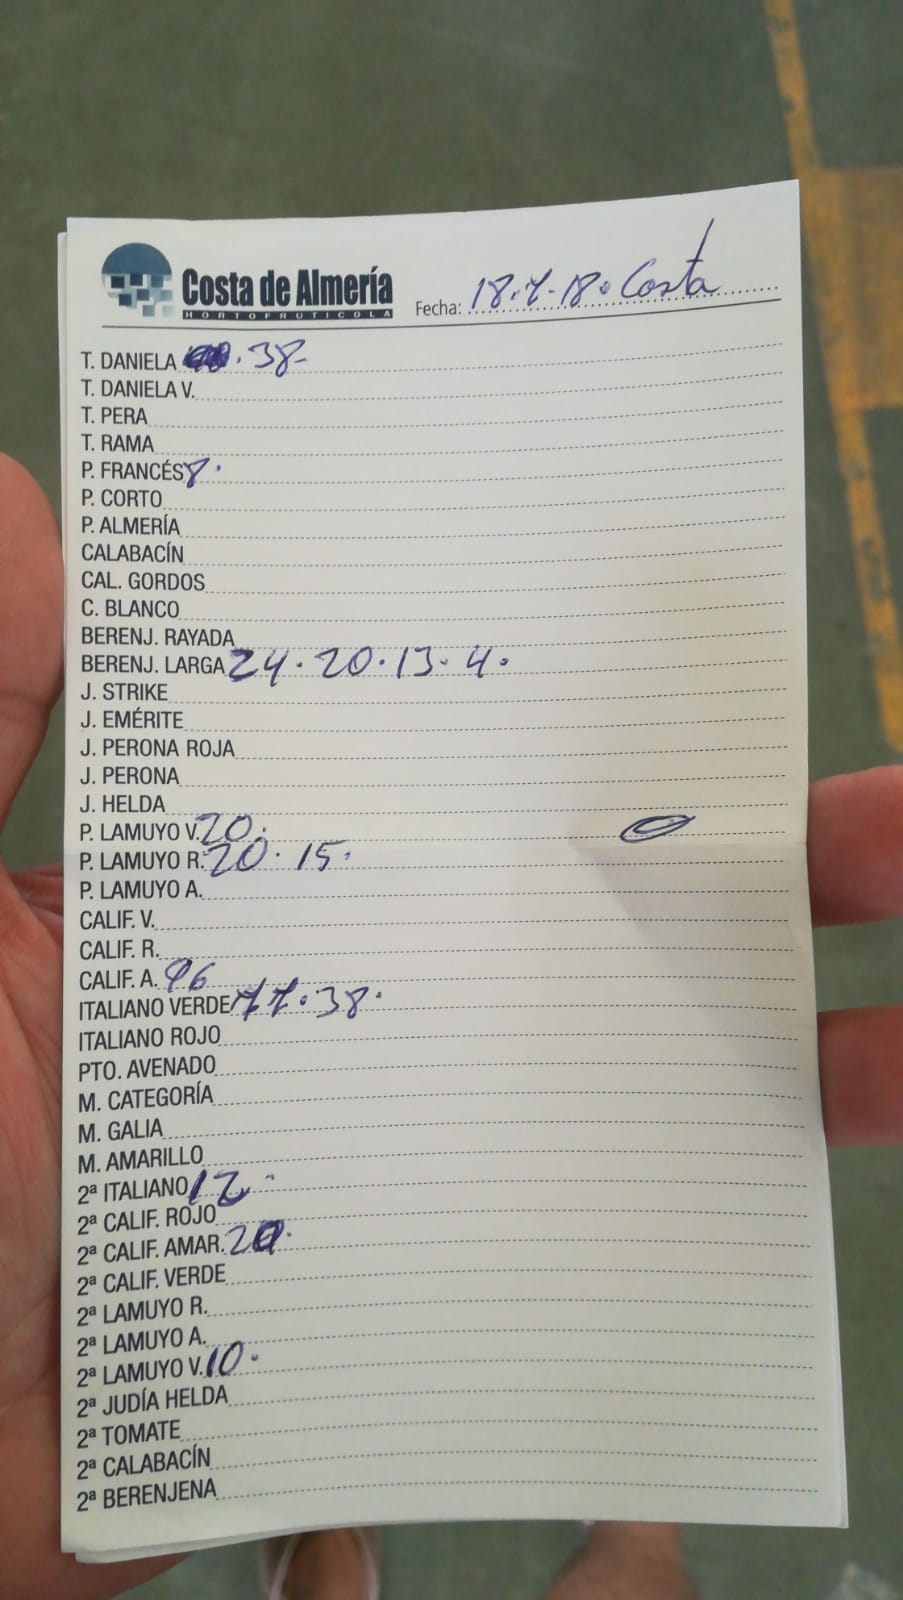 Costa de Almería
HORTOFRUTICOLA
Fecha: 18.7-18. Costa
T. DANIELA . 38-
T. DANIELA V.
T. PERA
T. RAMA
P. FRANCÉS 8.
P. CORTO
P. ALMERÍA
CALABACÍN
CAL. GORDOS
C. BLANCO
BERENJ. RAYADA
BERENJ. LARGA 24.20.13.4.
J. STRIKE
J. EMÉRITE
J. PERONA ROJA
J. PERONA
J. HELDA
P. LAMUYO V. 20.
P. LAMUYO R. 20. 15.
P. LAMUYO A.
CALIF. V.
CALIF. R.
CALIF. A. 96
ITALIANO VERDE 77.38.
ITALIANO ROJO
PTO. AVENADO
M. CATEGORÍA
M. GALIA
M. AMARILLO
2ª ITALIANO 12
2ª CALIF. ROJO
2ª CALIF. AMAR.
2ª CALIF. VERDE
2ª LAMUYO R.
2ª LAMUYO A.
2ª LAMUYO V. 10.
2ª JUDÍA HELDA
2ª TOMATE
2ª CALABACÍN
2ª BERENJENA